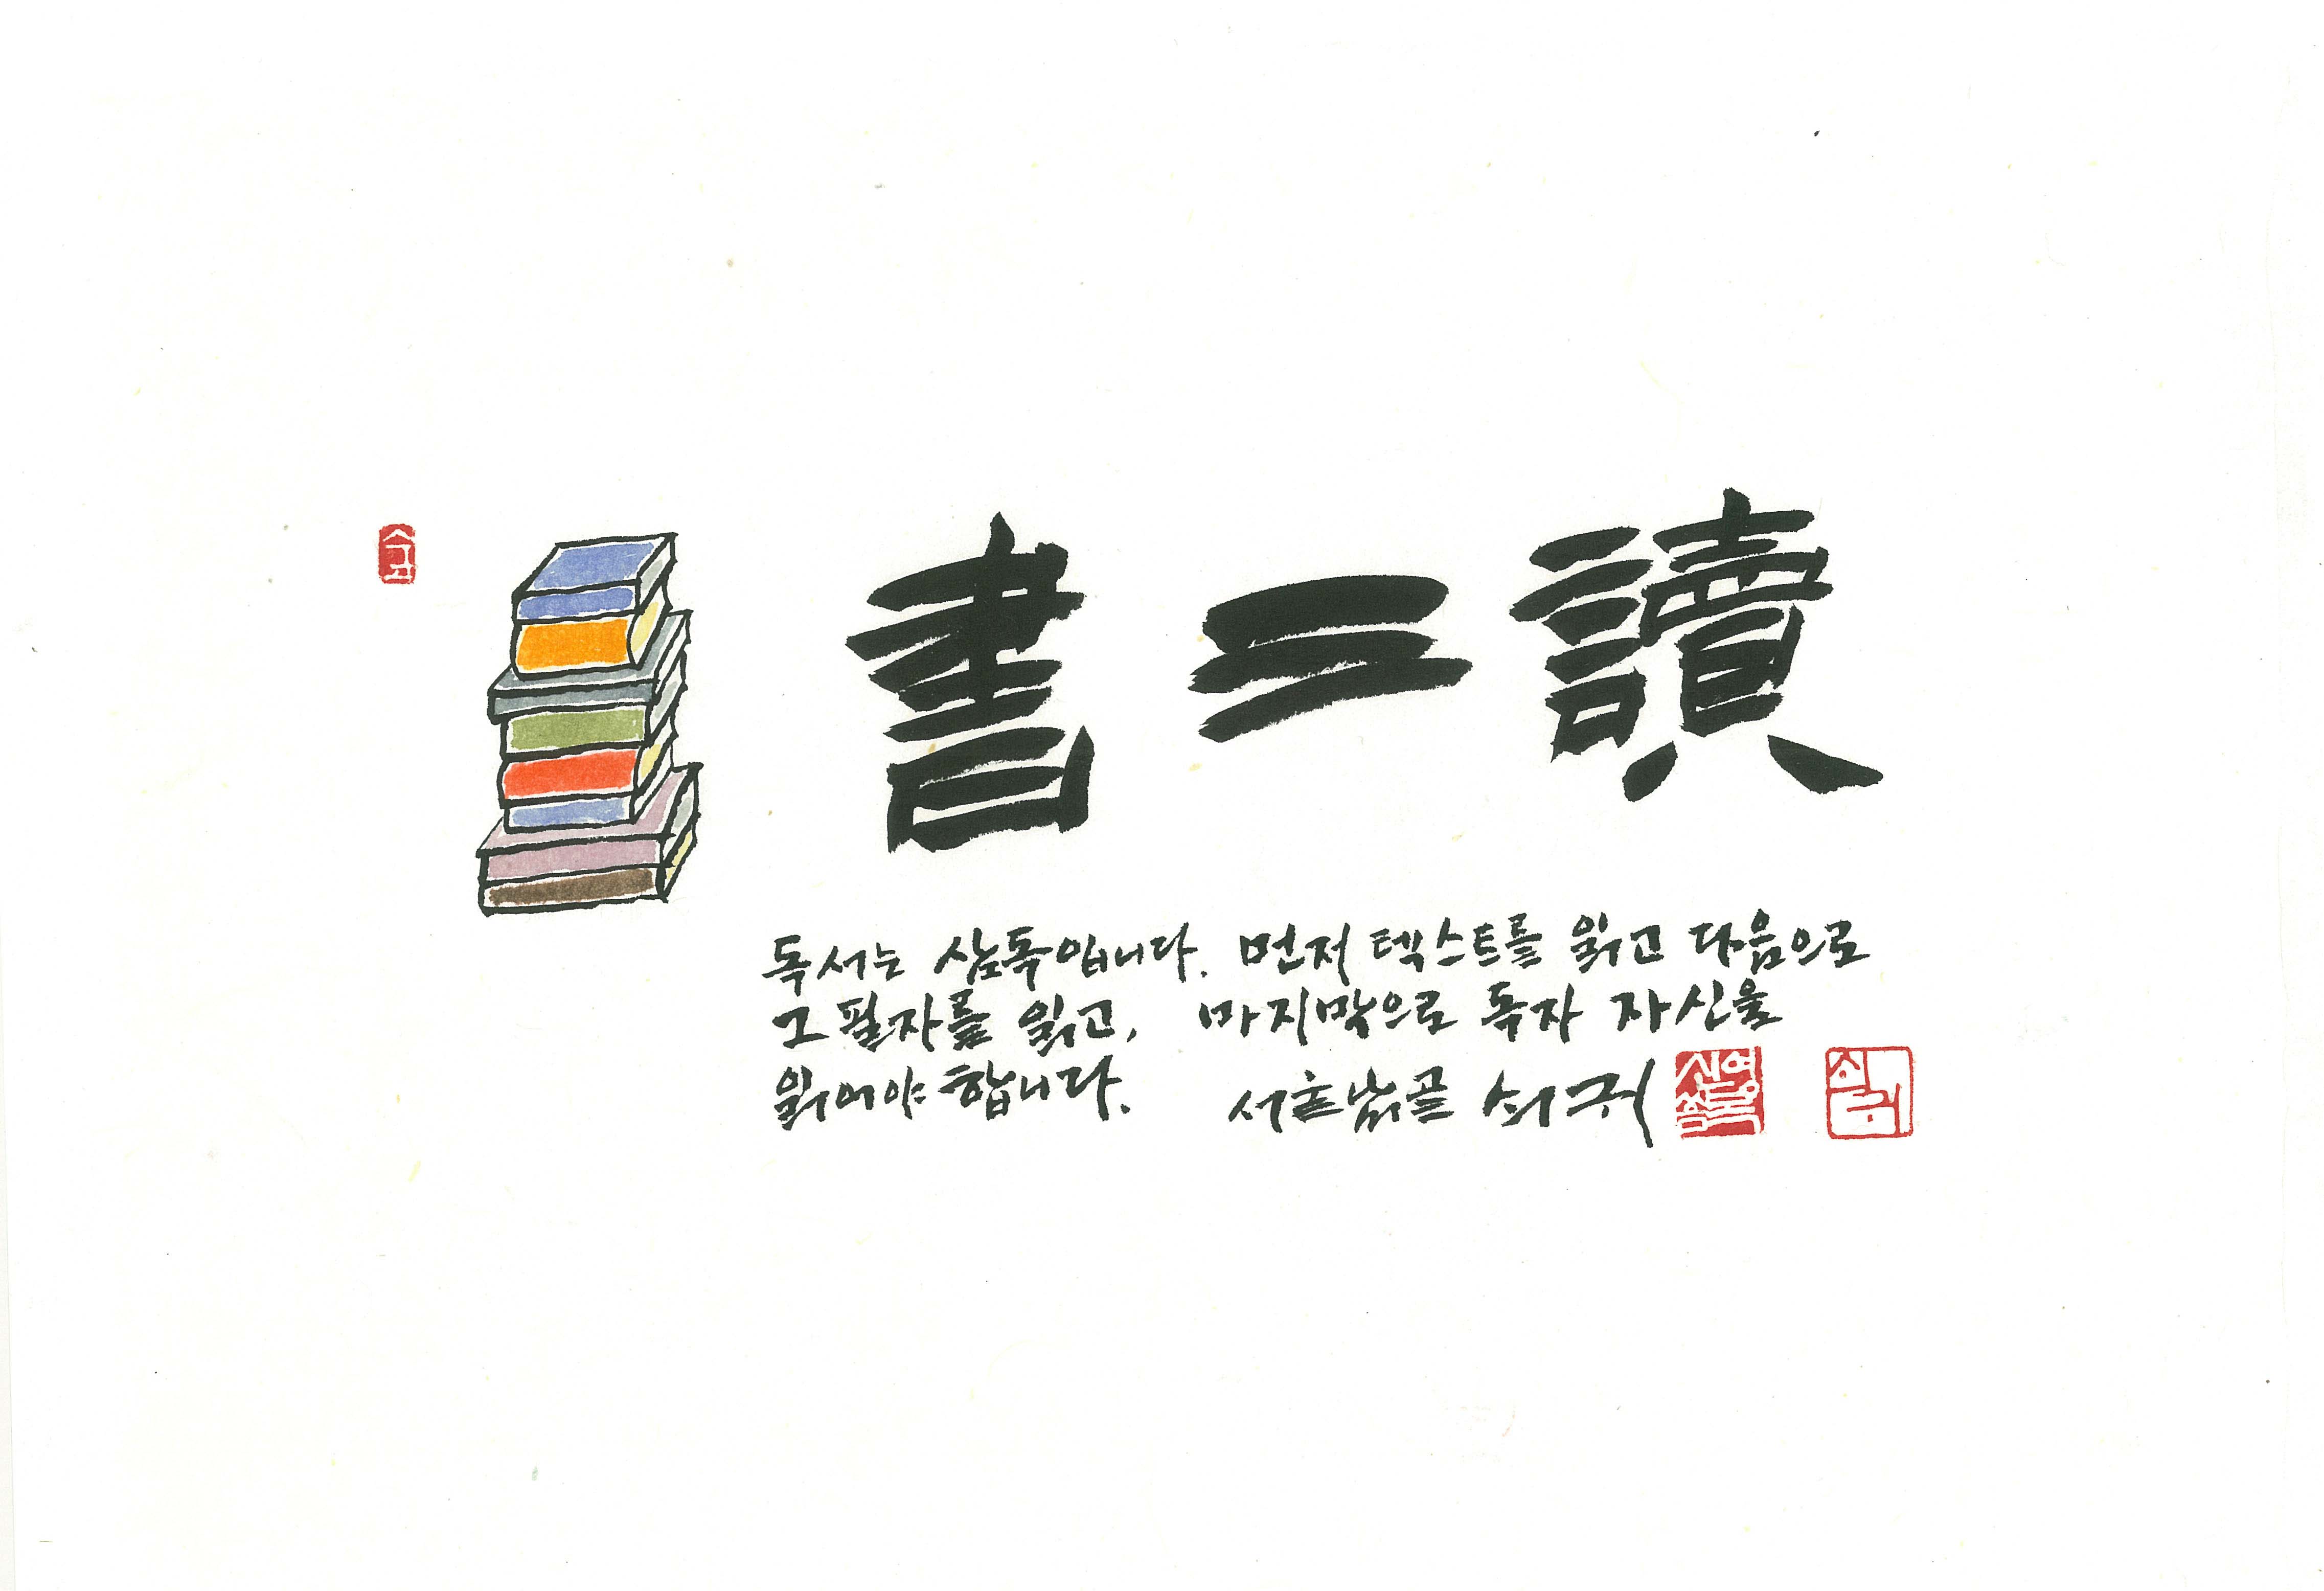 書三讀
독서는 삼독입니다. 먼저 텍스트를 읽고 다음으로
그 필자를 읽고, 마지막으로 독자 자신을
읽어야 합니다. 서호낡골 쇠귀
신영복
쇠귀